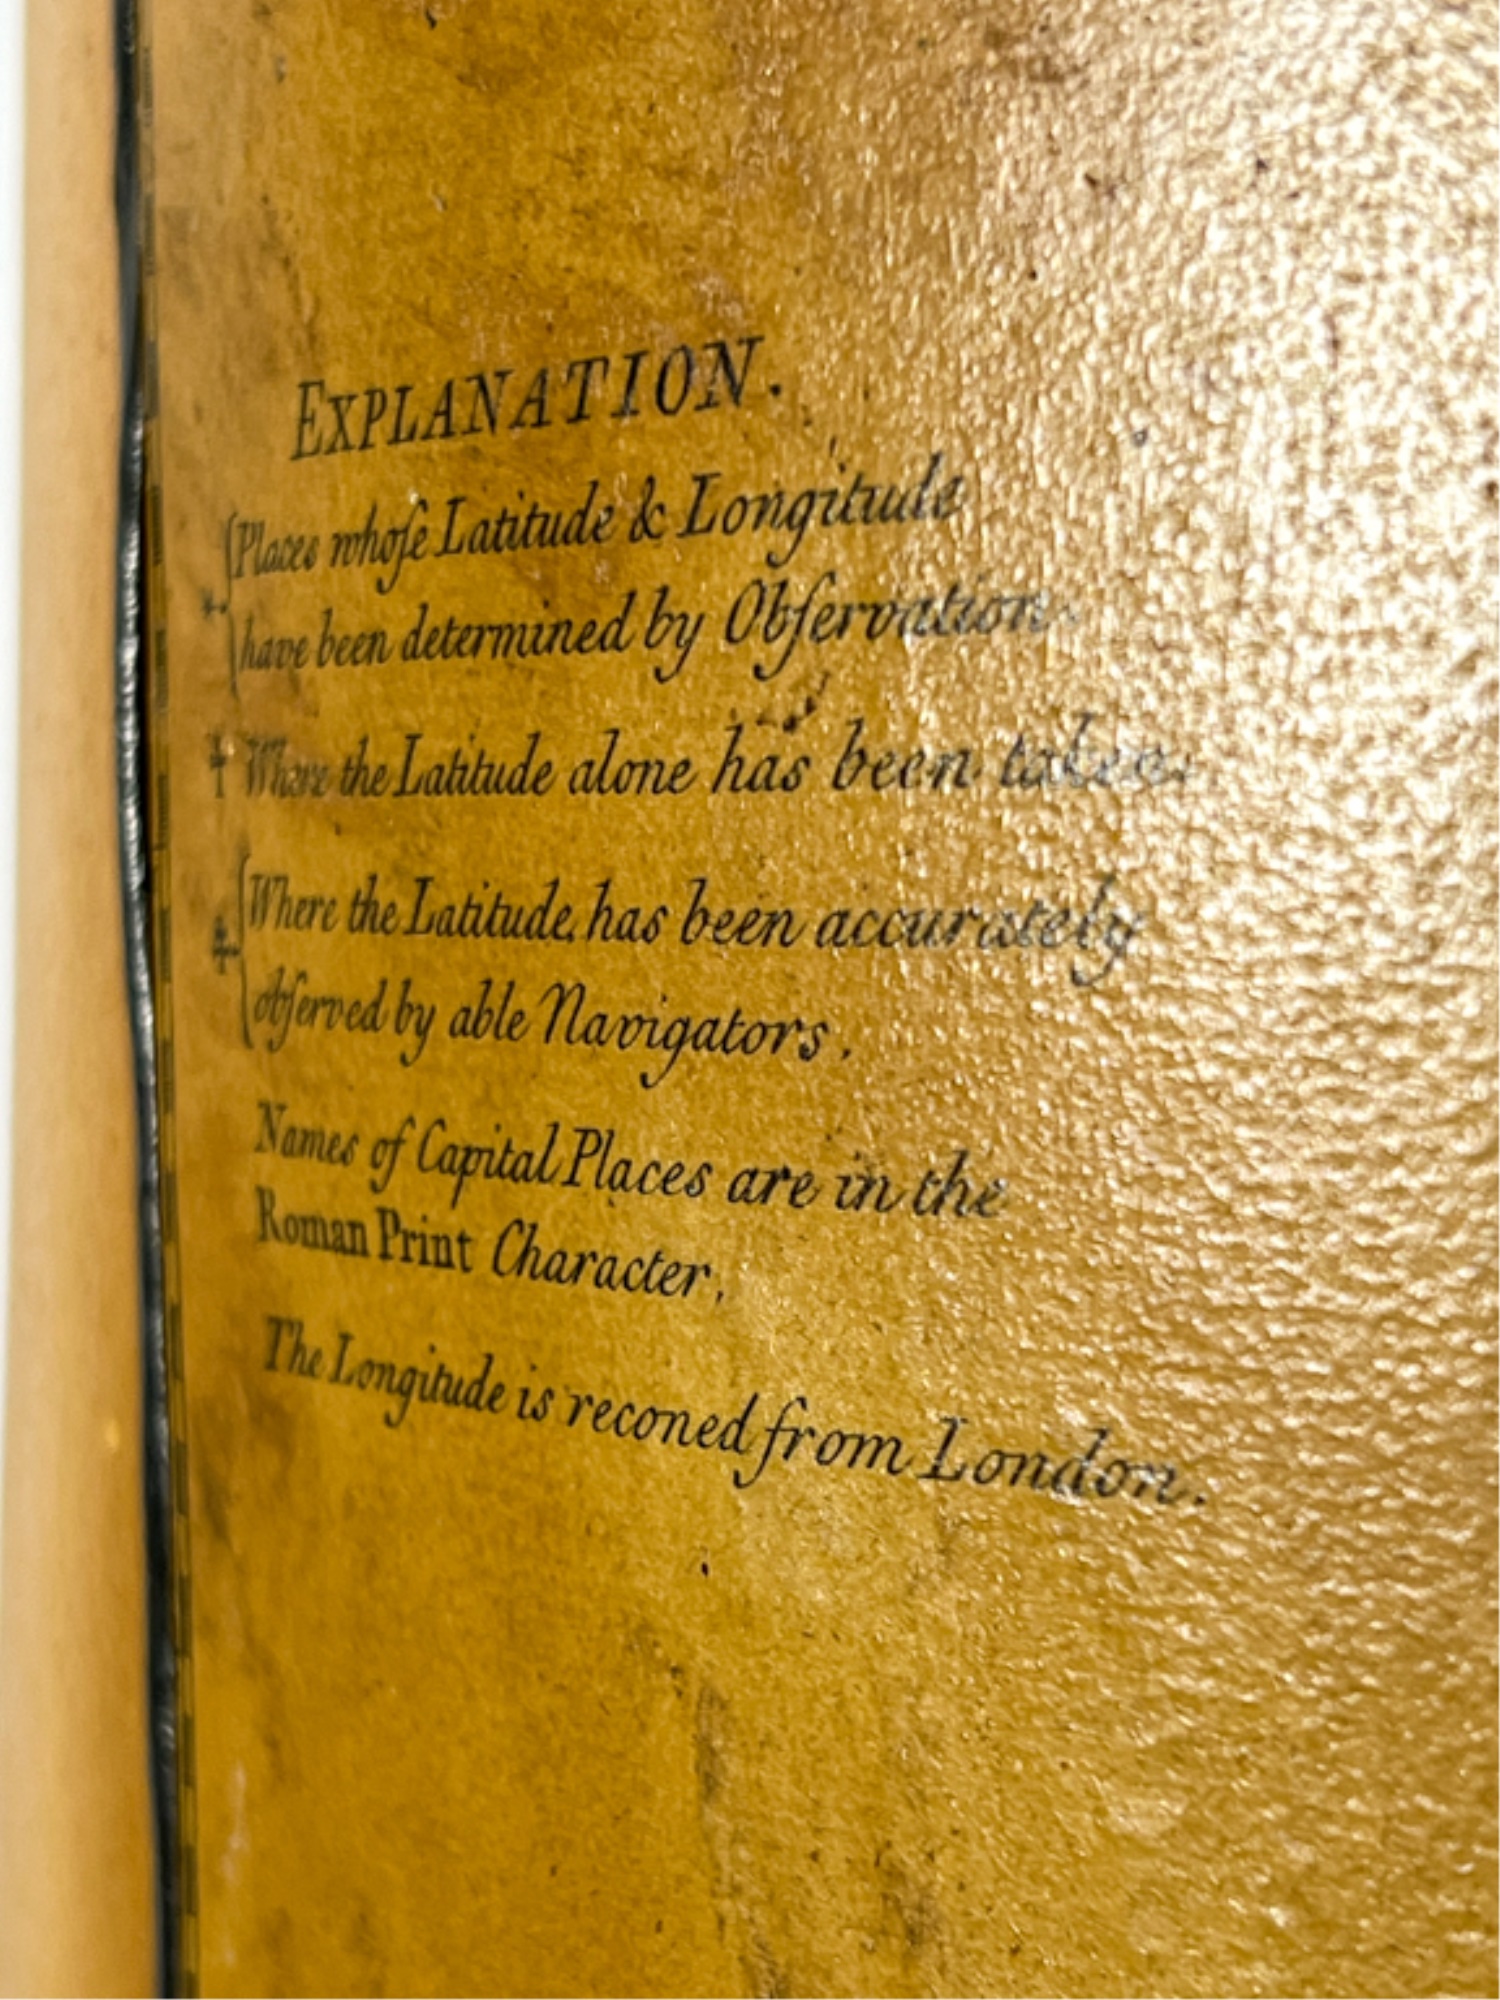 EXPLANATION.
Places whoſe Latitude & Longitude
have been determined by Obſervation.
Where the Latitude alone has been taken.
Where the Latitude has been accurately
obſerved by able Navigators.
Names of Capital Places are in the
Roman Print Character.
The Longitude is reconed from London.